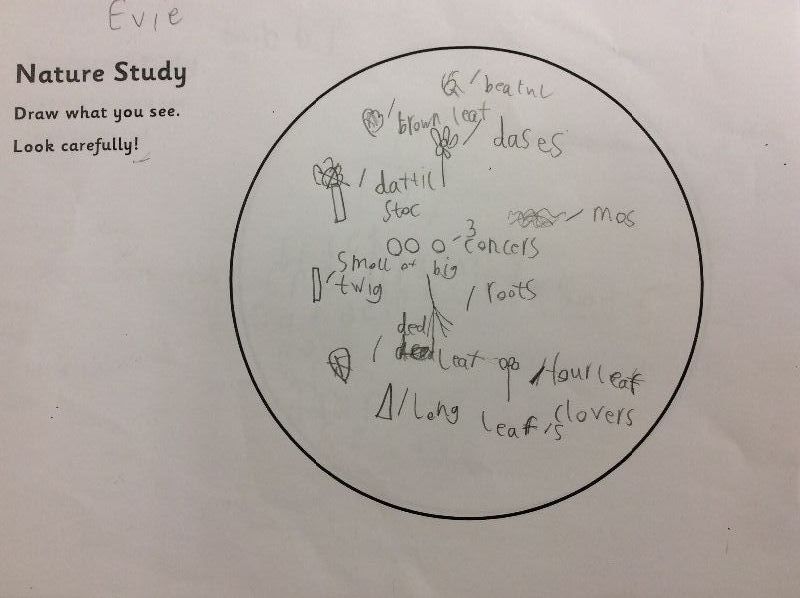 Evie
Nature Study
Draw what you see.
Look carefully!
/ beatul
/ brown leaf
/ dases
/ dattil
stoc
/ mos
3
concers
small at big
/ twig
/ roots
ded
/ leaf
/ four leaf
clovers
/ Long leaf/s